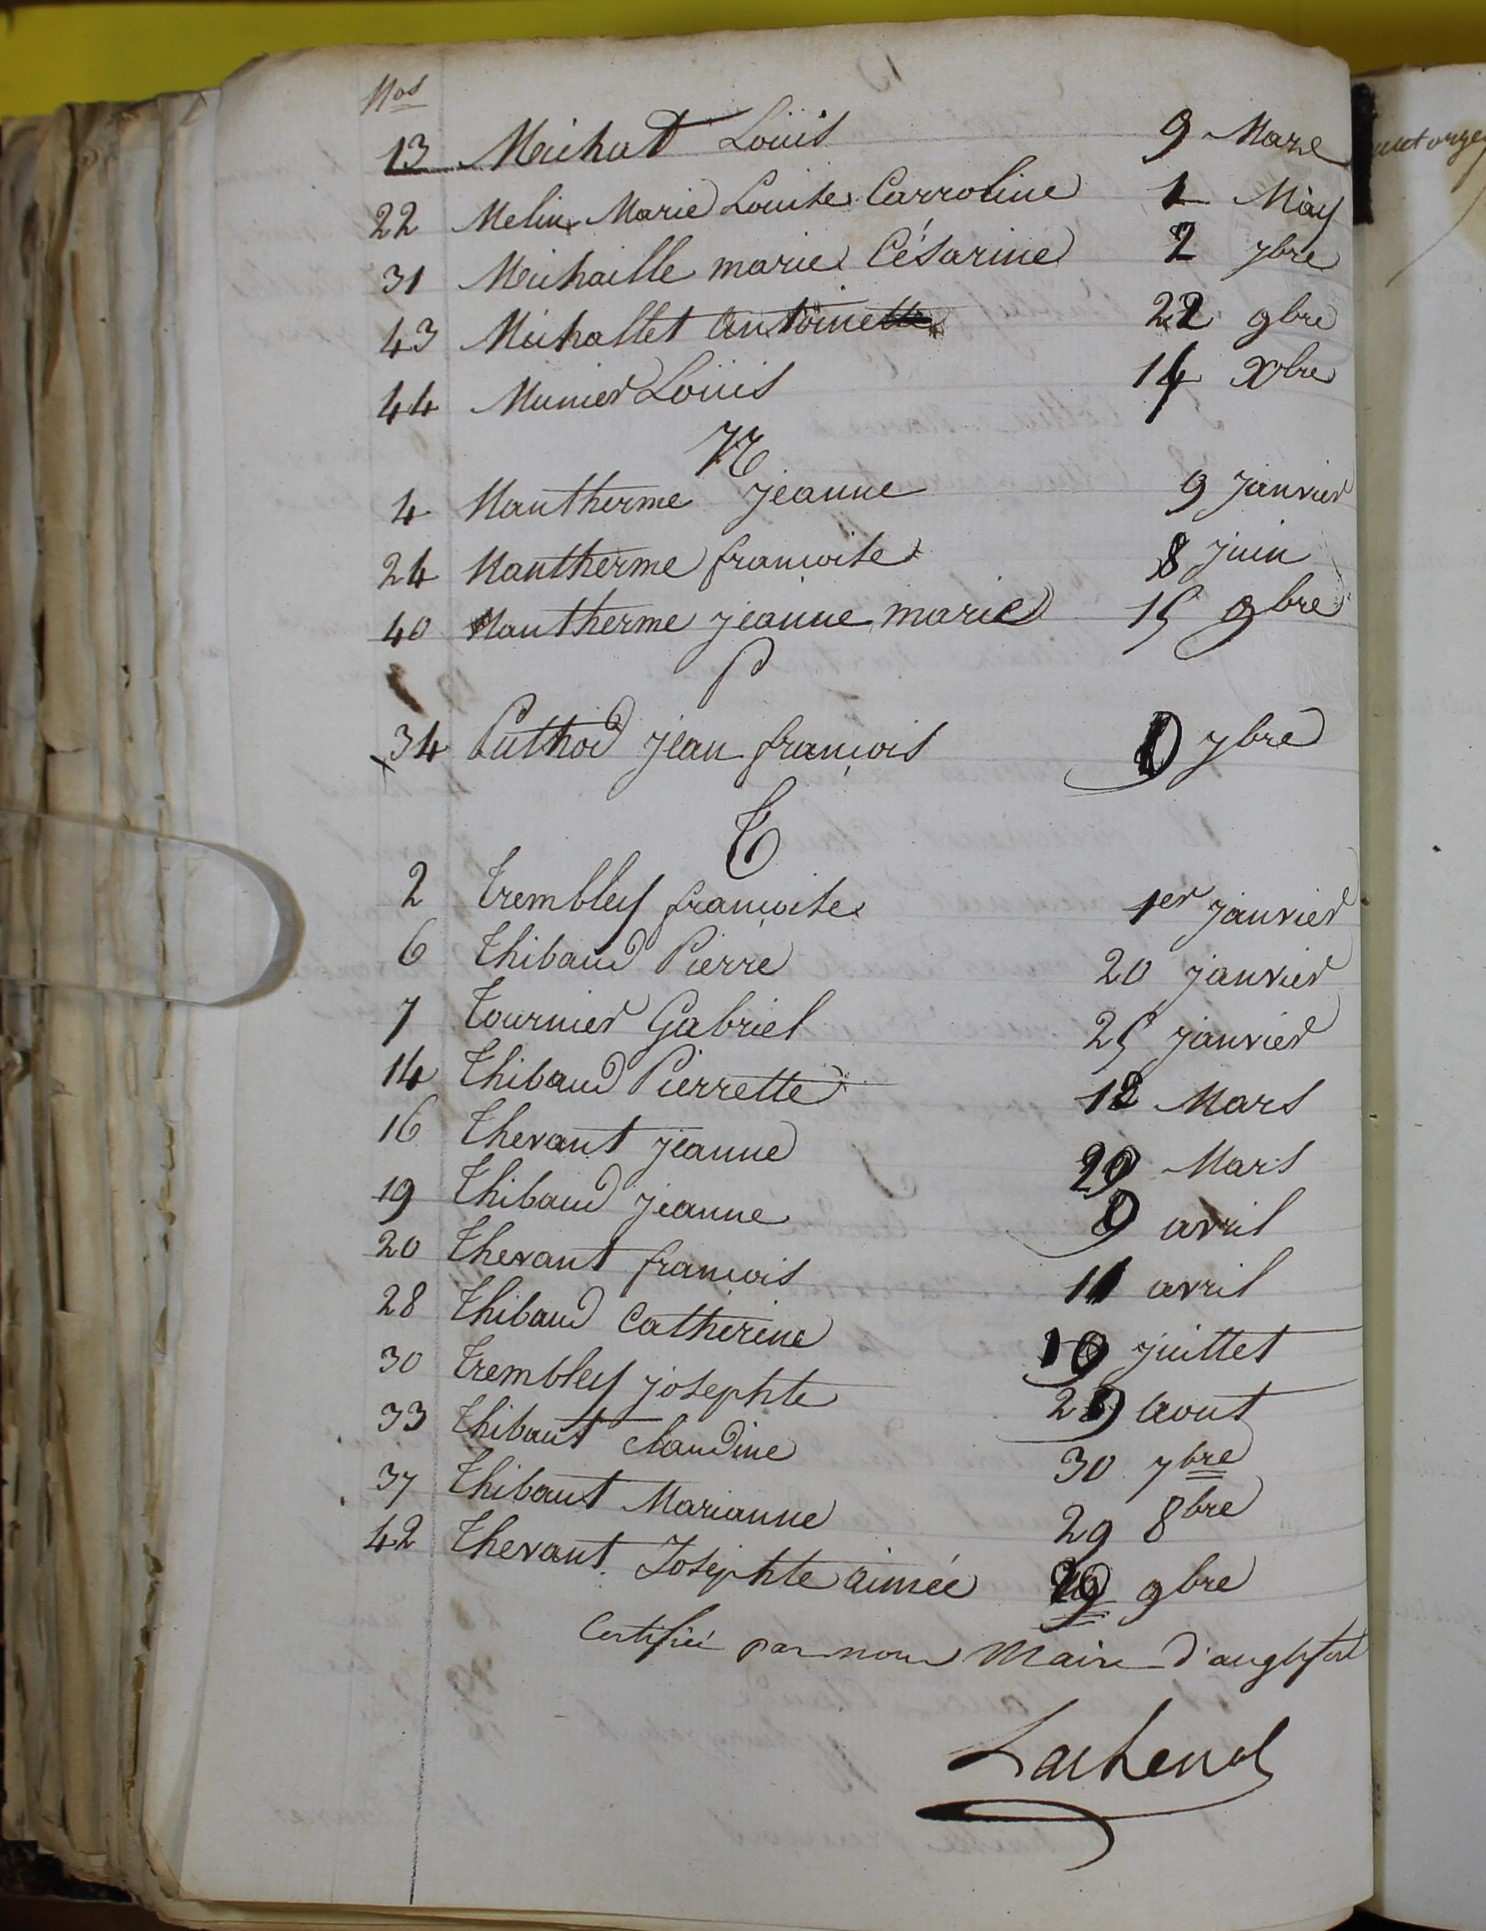 Nos
13 Michat Loüis 9 Mars
22 Melin Marie Louise Carroline 1 May
31 Michaille marie Césarine 2 7bre
43 Michallet Antoine 22 9bre
44 Munier Loüis 14 Xbre
N
4 Nantherme jeanne 9 janvier
24 Nantherme francoise 8 juin
40 Nantherme jeanne marie 15 9bre
P
34 Puthod jean françois 7bre
T
2 Trembley francoise 1er janvier
6 Thibaud Pierre 20 janvier
7 Tournier Gabriel 25 janvier
14 Thibaud Pierrette 12 Mars
16 Thevant jeanne 29 Mars
19 Thibaud jeanne avril
20 Thevant francois 11 avril
28 Thibaud Catherine 10 juillet
30 Trembley josephte aout
33 Thibaut claudine 30 7bre
37 Thibaut Marianne 29 8bre
42 Thevant Josephte aimée 9bre
Certifié par nous Maire d'anglefort
Lachenal